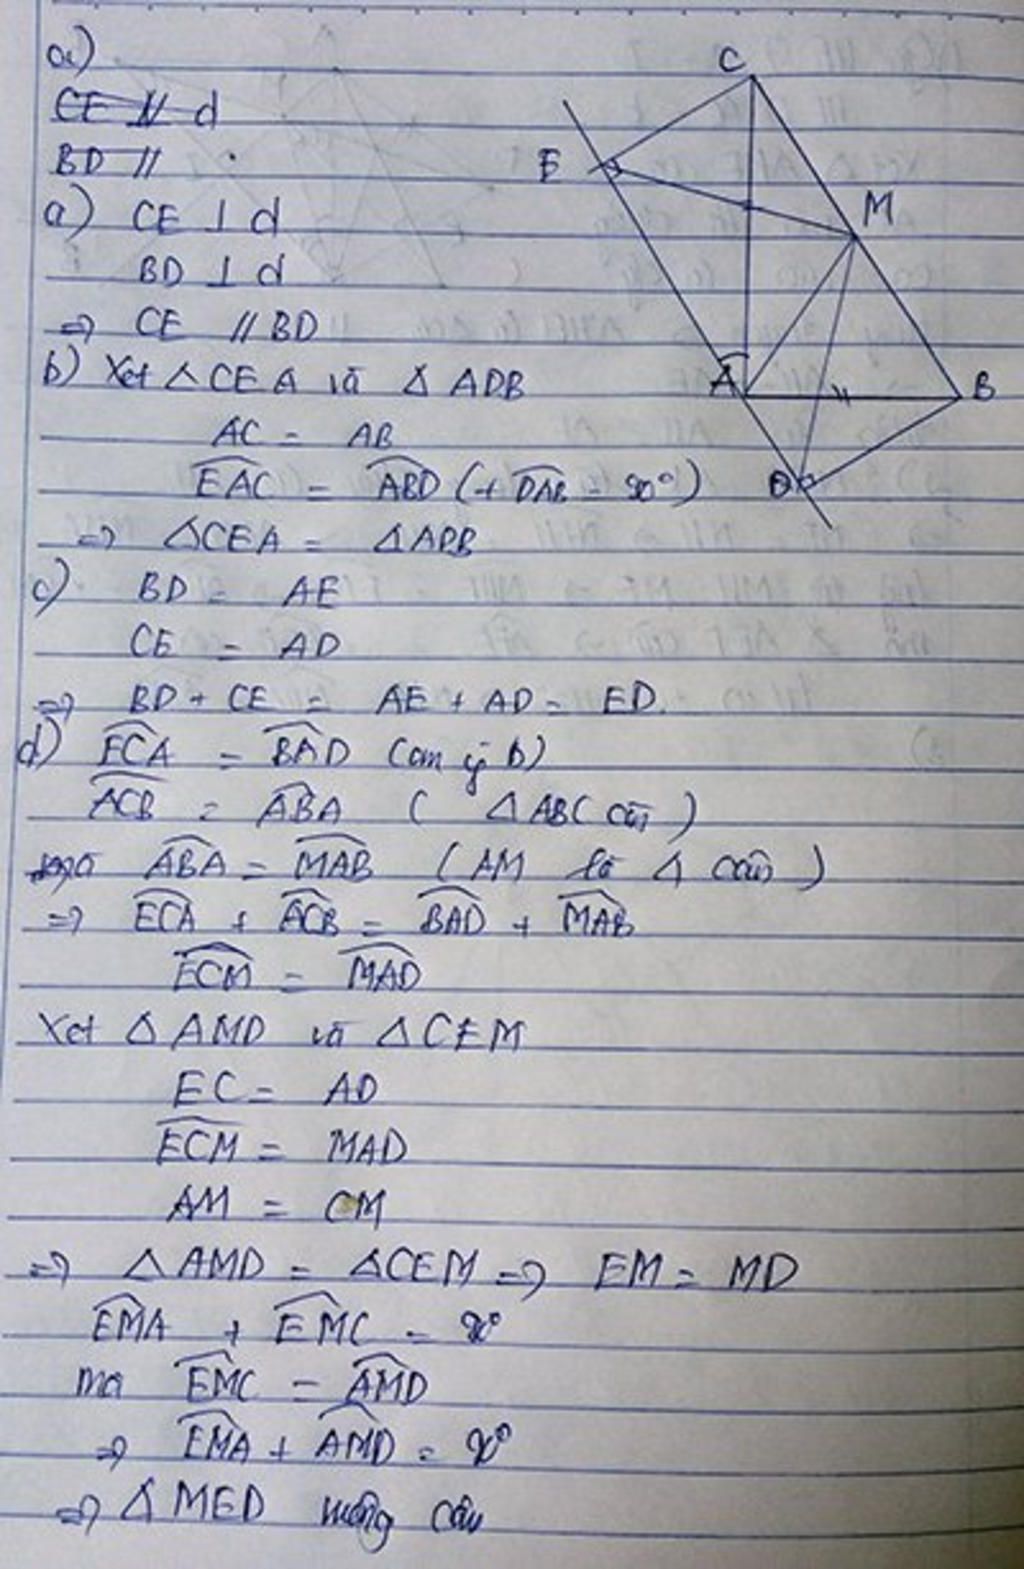 a)
CE // d
BD //
a) CE ⊥ d
BD ⊥ d
=> CE // BD
b) Xet △CEA và △ADB
AC = AB
EAC = ABD (+ DAB = 90°)
=> △CEA = △ADB
c) BD = AE
CE = AD
=> BD + CE = AE + AD = ED.
d) ECA = BAD (cm ý b)
ACB = ABA ( △ABC cân )
mà ABA = MAB (AM là △ cân )
=> ECA + ACB = BAD + MAB
ECM = MAD
Xet △AMD và △CEM
EC = AD
ECM = MAD
AM = CM
=> △AMD = △CEM => EM = MD
EMA + EMC = 90°
ma EMC = AMD
=> EMA + AMD = 90°
=> △MED vuông cân
C
E
M
A
B
D